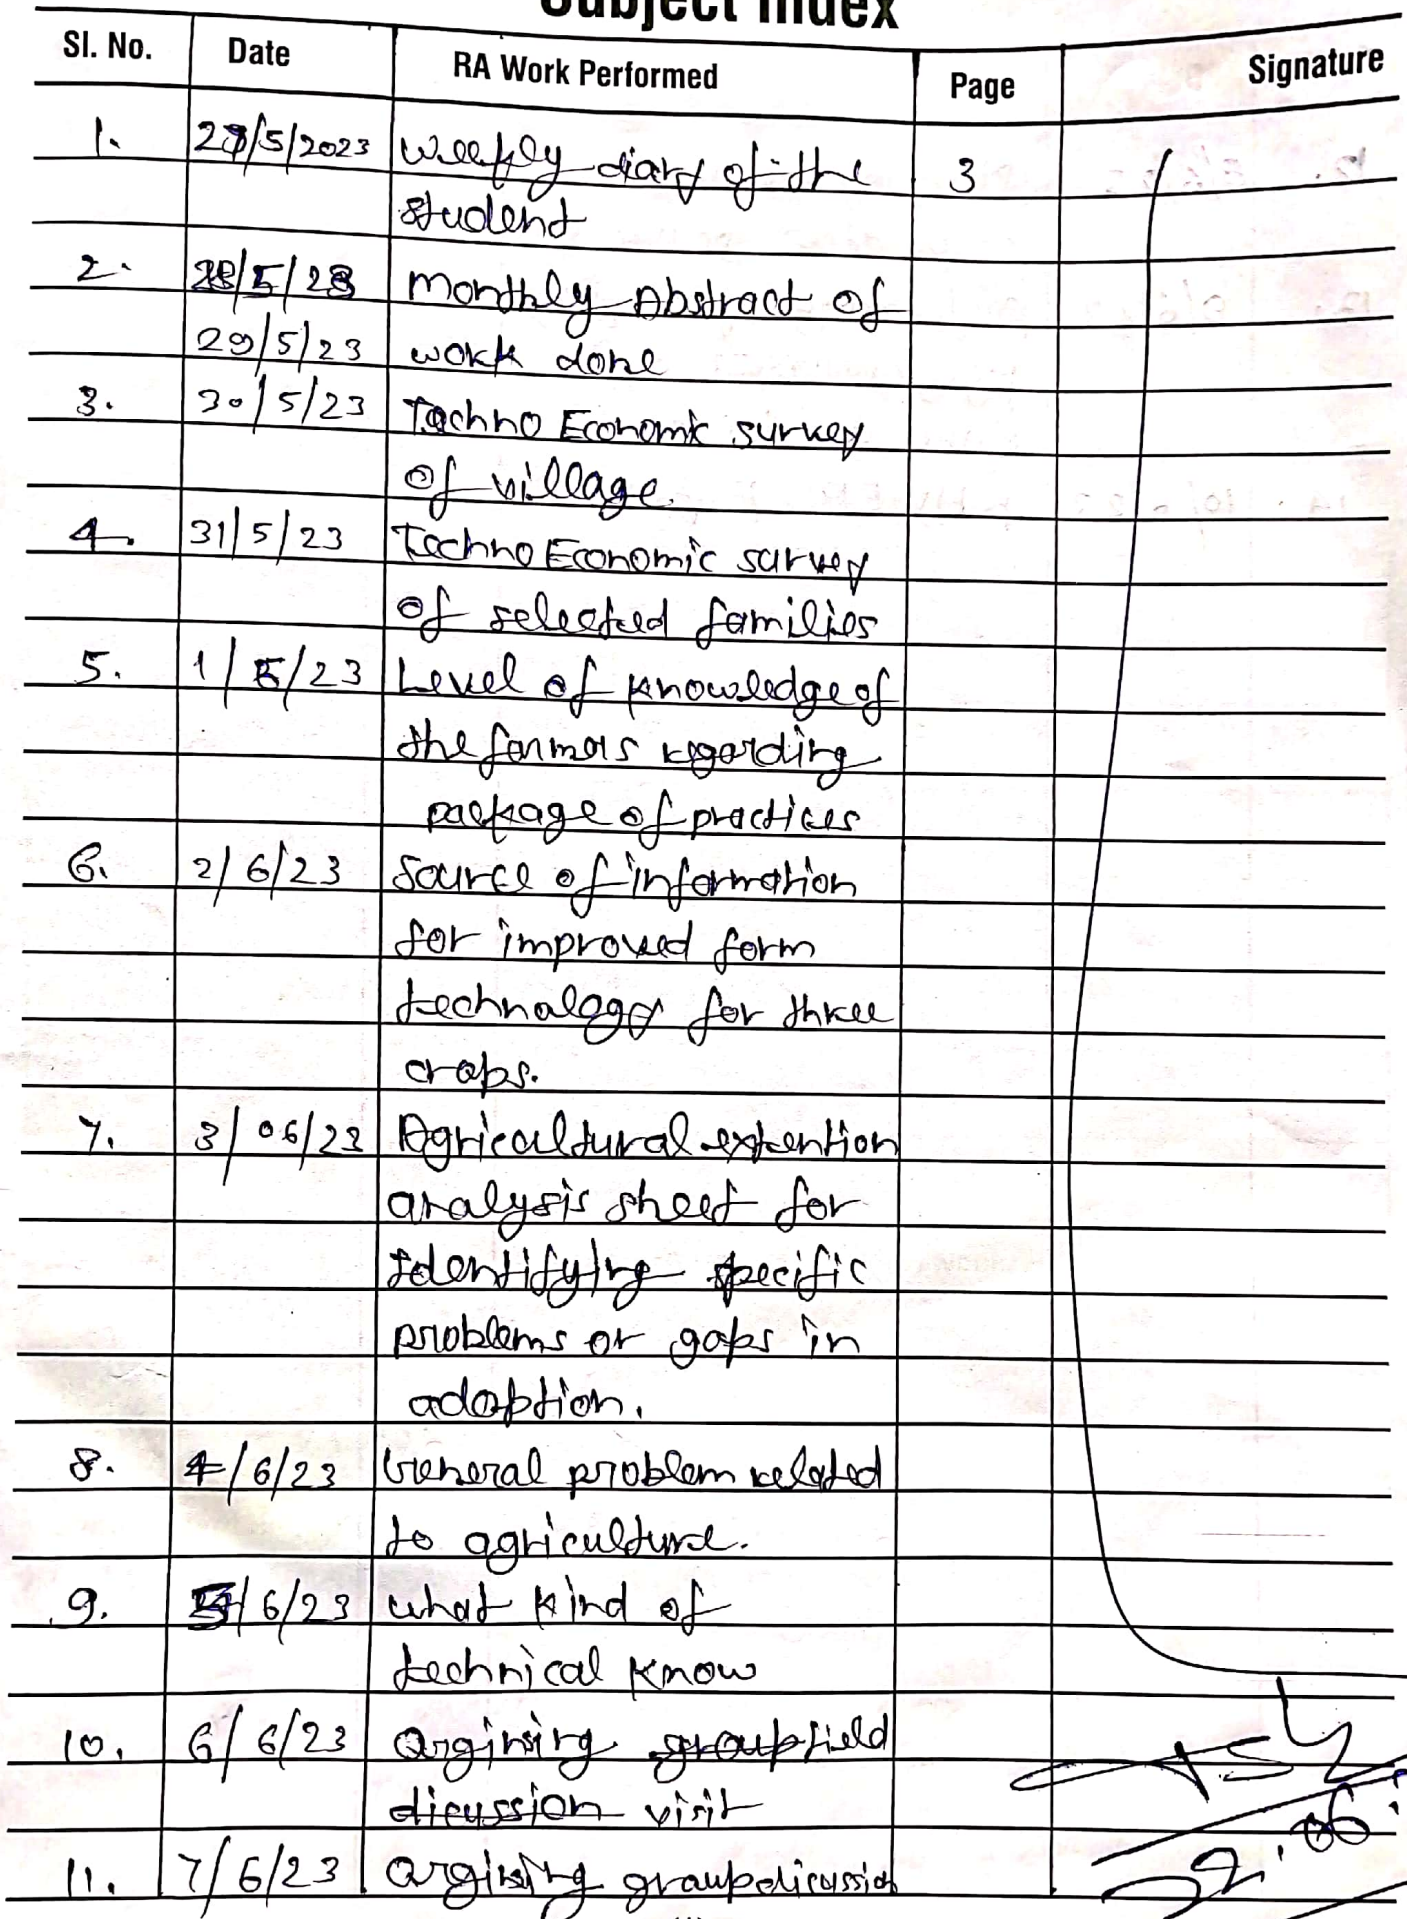 Subject Index
Sl. No. Date RA Work Performed Page Signature
1. 27/5/2023 Weekly diary of the 3
student
2. 28/5/23 Monthly Abstract of
29/5/23 work done
3. 30/5/23 Techno Economic survey
of village.
4. 31/5/23 Techno Economic survey
of selected families
5. 1/6/23 Level of knowledge of
the farmers regarding
package of practices
6. 2/6/23 Source of information
for improved form
technalogy for three
crops.
7. 3/06/23 Agricultural extention
analysis sheet for
Identifying specific
problems or gaps in
adoption.
8. 4/6/23 General problem related
to agriculture.
9. 5/6/23 what kind of
technical know
10. 6/6/23 orgining group field
dicussion visit
11. 7/6/23 orgining graup dicussion